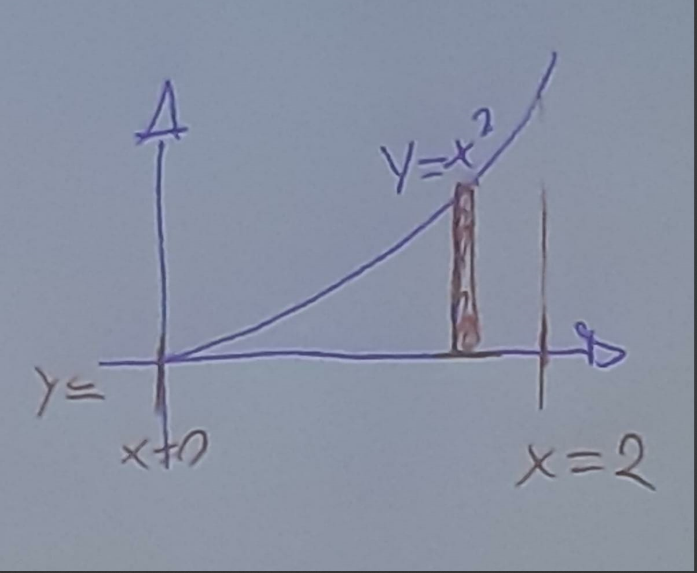 y=x²
y=
x=0
x=2